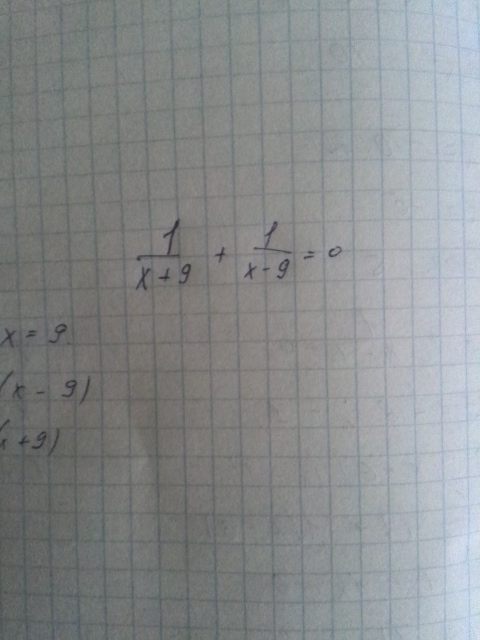 1/(x+9) + 1/(x-9) = 0
x = 9
(x - 9)
(x + 9)